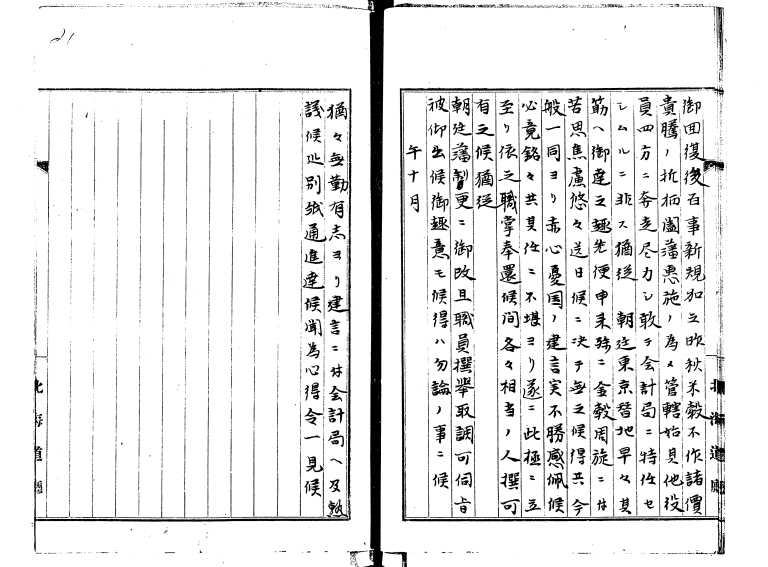 御回復後百事新規加之昨秋米穀不作諸價
賁騰ノ折柄闔藩惠施ノ為々管轄始貝他役
員四方ニ奔走尽力シ敢テ会計局ニ特任セ
シムルニ非ス猶從 朝廷東京替地早々其
筋ヘ御達之趣先便申来殊ニ金穀周旋ニ付
苦思焦慮悠々送日候ニ決テ無之候得共今
般一同ヨリ赤心憂国ノ建言実不勝感佩候
必竟銘々共其任ニ不堪ヨリ遂ニ此極ニ立
至リ依之職掌奉還候間各々相当ノ人撰可
有之候猶從
朝廷藩制更ニ御改且職員撰擧取調可伺旨
被仰出候御趣意モ候得ハ勿論ノ事ニ候
午十月
猶々無勤有志ヨリ建言ニ付会計局ヘ及熟
議候処別紙通進達候聞為心得令一見候
北海道廳
北海道廳
21